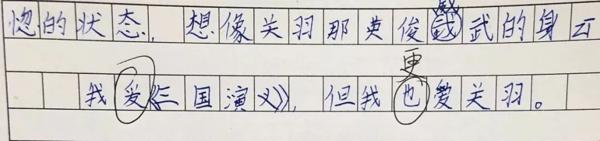 惚的状态，想像关羽那英俊威武的身云
更
我爱《三国演义》，但我也爱关羽。